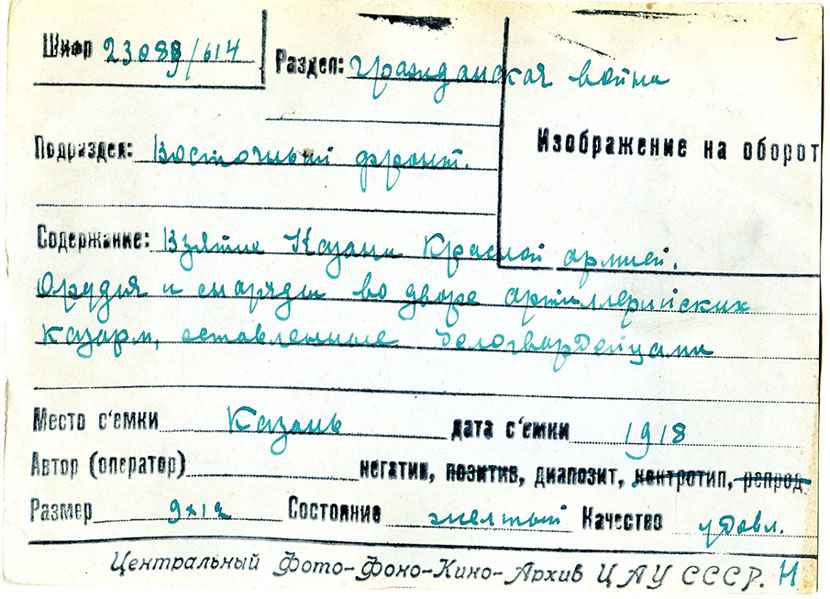 Шифр 23089/614
Раздел: гражданская война
Изображение на оборот
Подраздел: Восточный фронт.
Содержание: Взятие Казани Красной армией.
Орудия и снаряды во дворе артиллерийских
казарм, оставленные белогвардейцами
Место с'емки Казань дата с'емки 1918
Автор (оператор) негатив, позитив, диапозит, контротип, репрод.
Размер 9х12 Состояние желтый Качество удовл.
Центральный Фото-Фоно-Кино-Архив ЦАУ СССР. Н